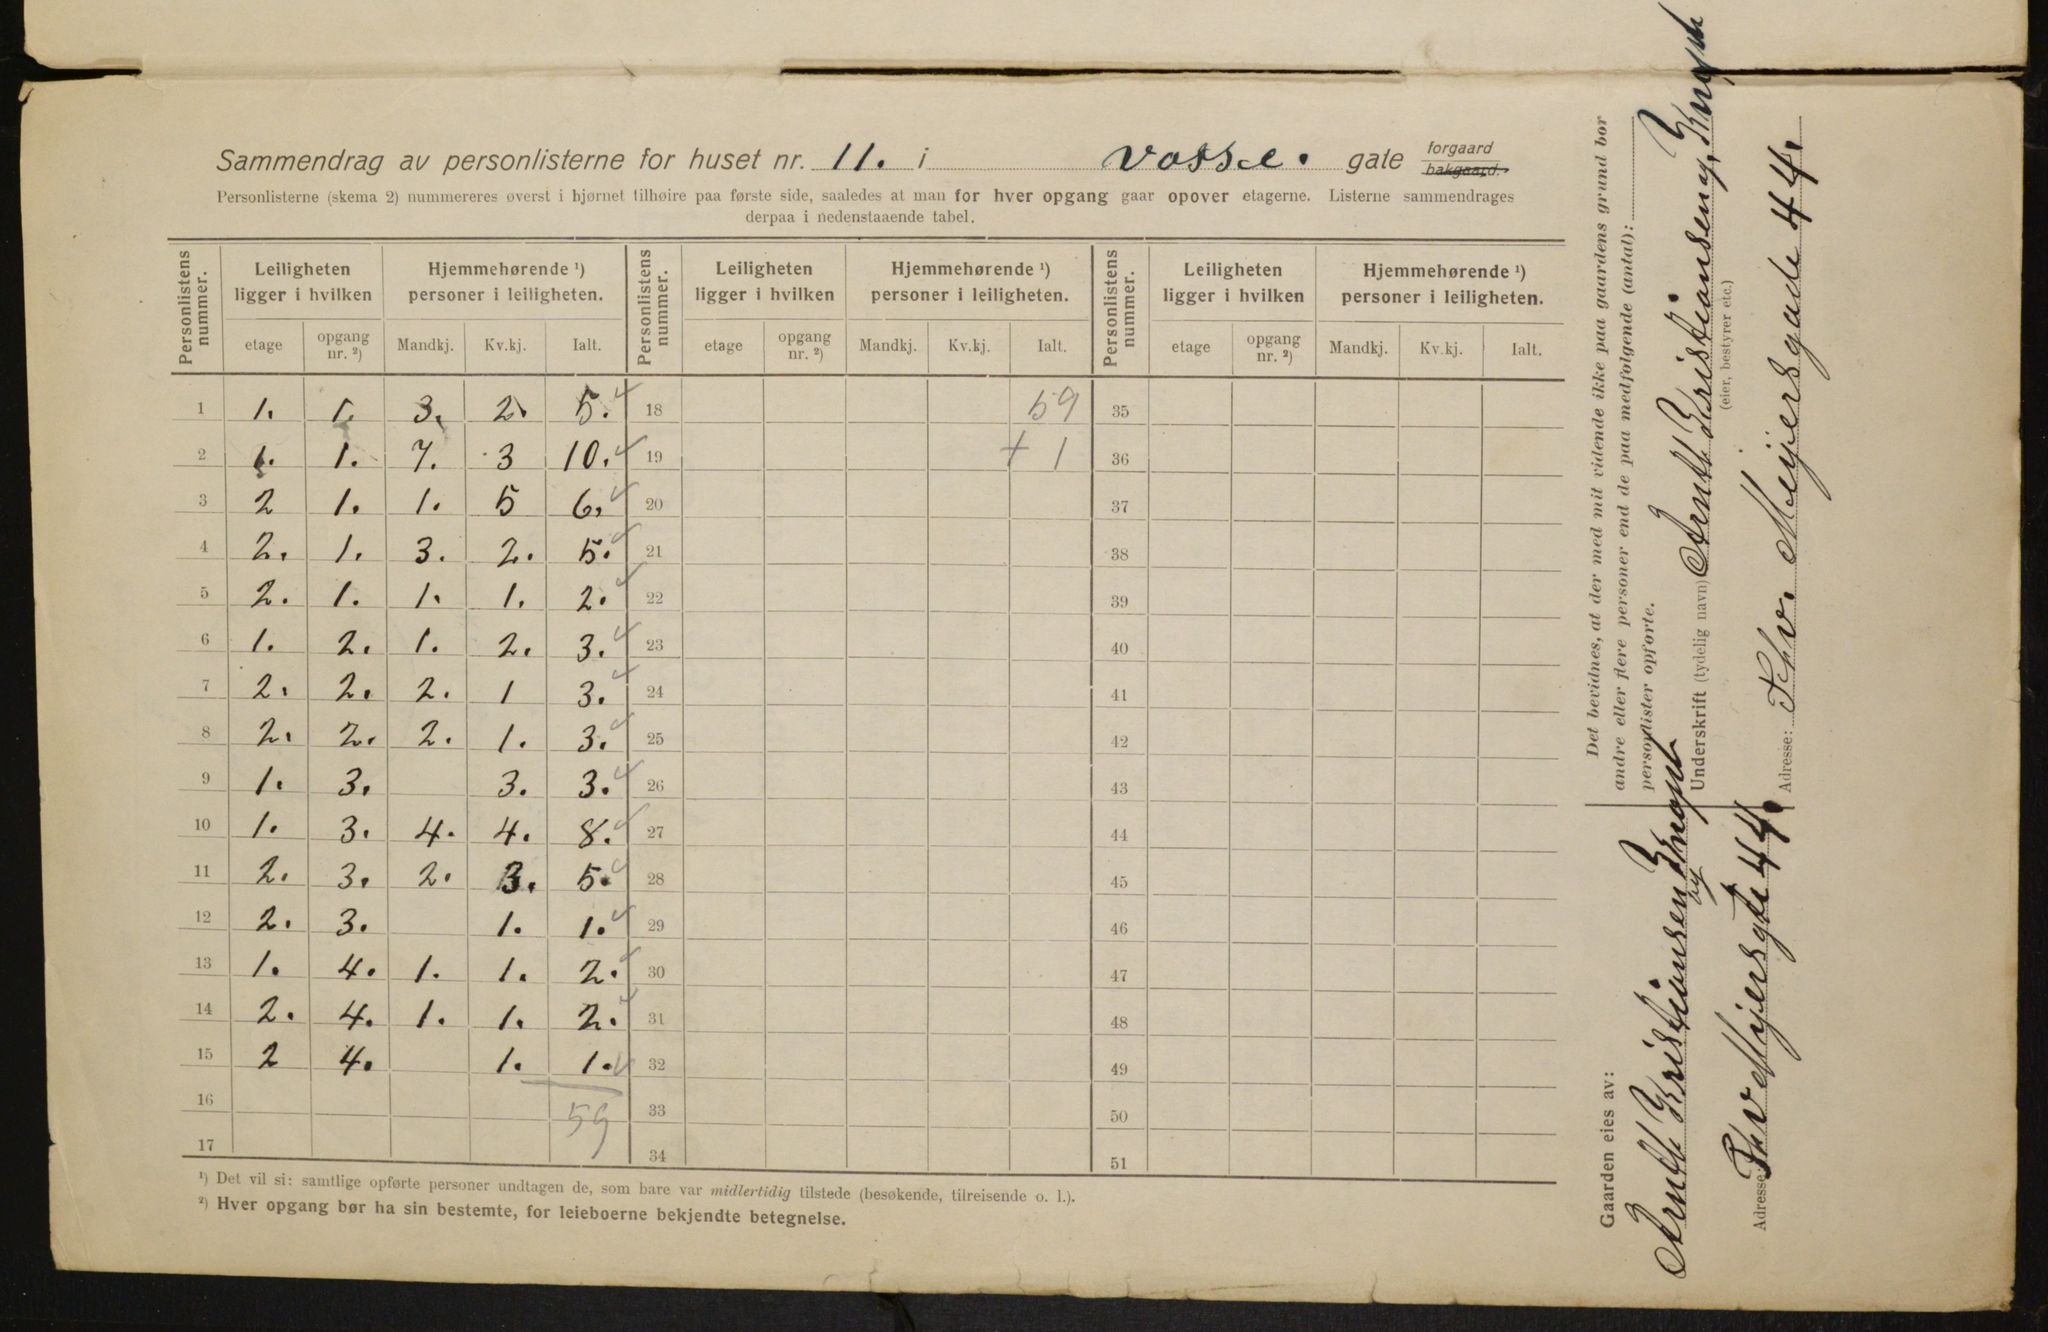 Sammendrag av personlisterne for huset nr. 11. i Vosse. gate forgaard bakgaard.
Personlisterne (skema 2) nummereres øverst i hjørnet tilhøire paa første side, saaledes at man for hver opgang gaar opover etagerne. Listerne sammendrages
derpaa i nedenstaaende tabel.
Personlistens nummer. Leiligheten ligger i hvilken Hjemmehørende ¹) personer i leiligheten. Personlistens nummer. Leiligheten ligger i hvilken Hjemmehørende ¹) personer i leiligheten. Personlistens nummer. Leiligheten ligger i hvilken Hjemmehørende ¹) personer i leiligheten.
etage opgang nr. ²) Mandkj. Kv.kj. Ialt. etage opgang nr. ²) Mandkj. Kv.kj. Ialt. etage opgang nr. ²) Mandkj. Kv.kj. Ialt.
1 1. 1. 3. 2. 5. 18 59 35
2 1. 1. 7. 3 10. 19 + 1 36
3 2 1. 1. 5 6. 20 37
4 2. 1. 3. 2. 5. 21 38
5 2. 1. 1. 1. 2. 22 39
6 1. 2. 1. 2. 3. 23 40
7 2. 2. 2. 1 3. 24 41
8 2. 2. 2. 1. 3. 25 42
9 1. 3. 3. 3. 26 43
10 1. 3. 4. 4. 8. 27 44
11 2. 3. 2. 3. 5. 28 45
12 2. 3. 1. 1. 29 46
13 1. 4. 1. 1. 2. 30 47
14 2. 4. 1. 1. 2. 31 48
15 2 4. 1. 1. 32 49
16 59 33 50
17 34 51
¹) Det vil si: samtlige opførte personer undtagen de, som bare var midlertidig tilstede (besøkende, tilreisende o. l.).
²) Hver opgang bør ha sin bestemte, for leieboerne bekjendte betegnelse.
Det bevidnes, at der med mit vidende ikke paa gaardens grund bor
andre eller flere personer end de paa medfølgende (antal):
personlister opførte.
Underskrift (tydelig navn) Arnth Kristiansen,
(eier, bestyrer etc.)
Adresse: Thv. Meijersgade 44.
Gaarden eies av:
Arnth Kristiansen
Adresse: Thv Meijersgt 44.